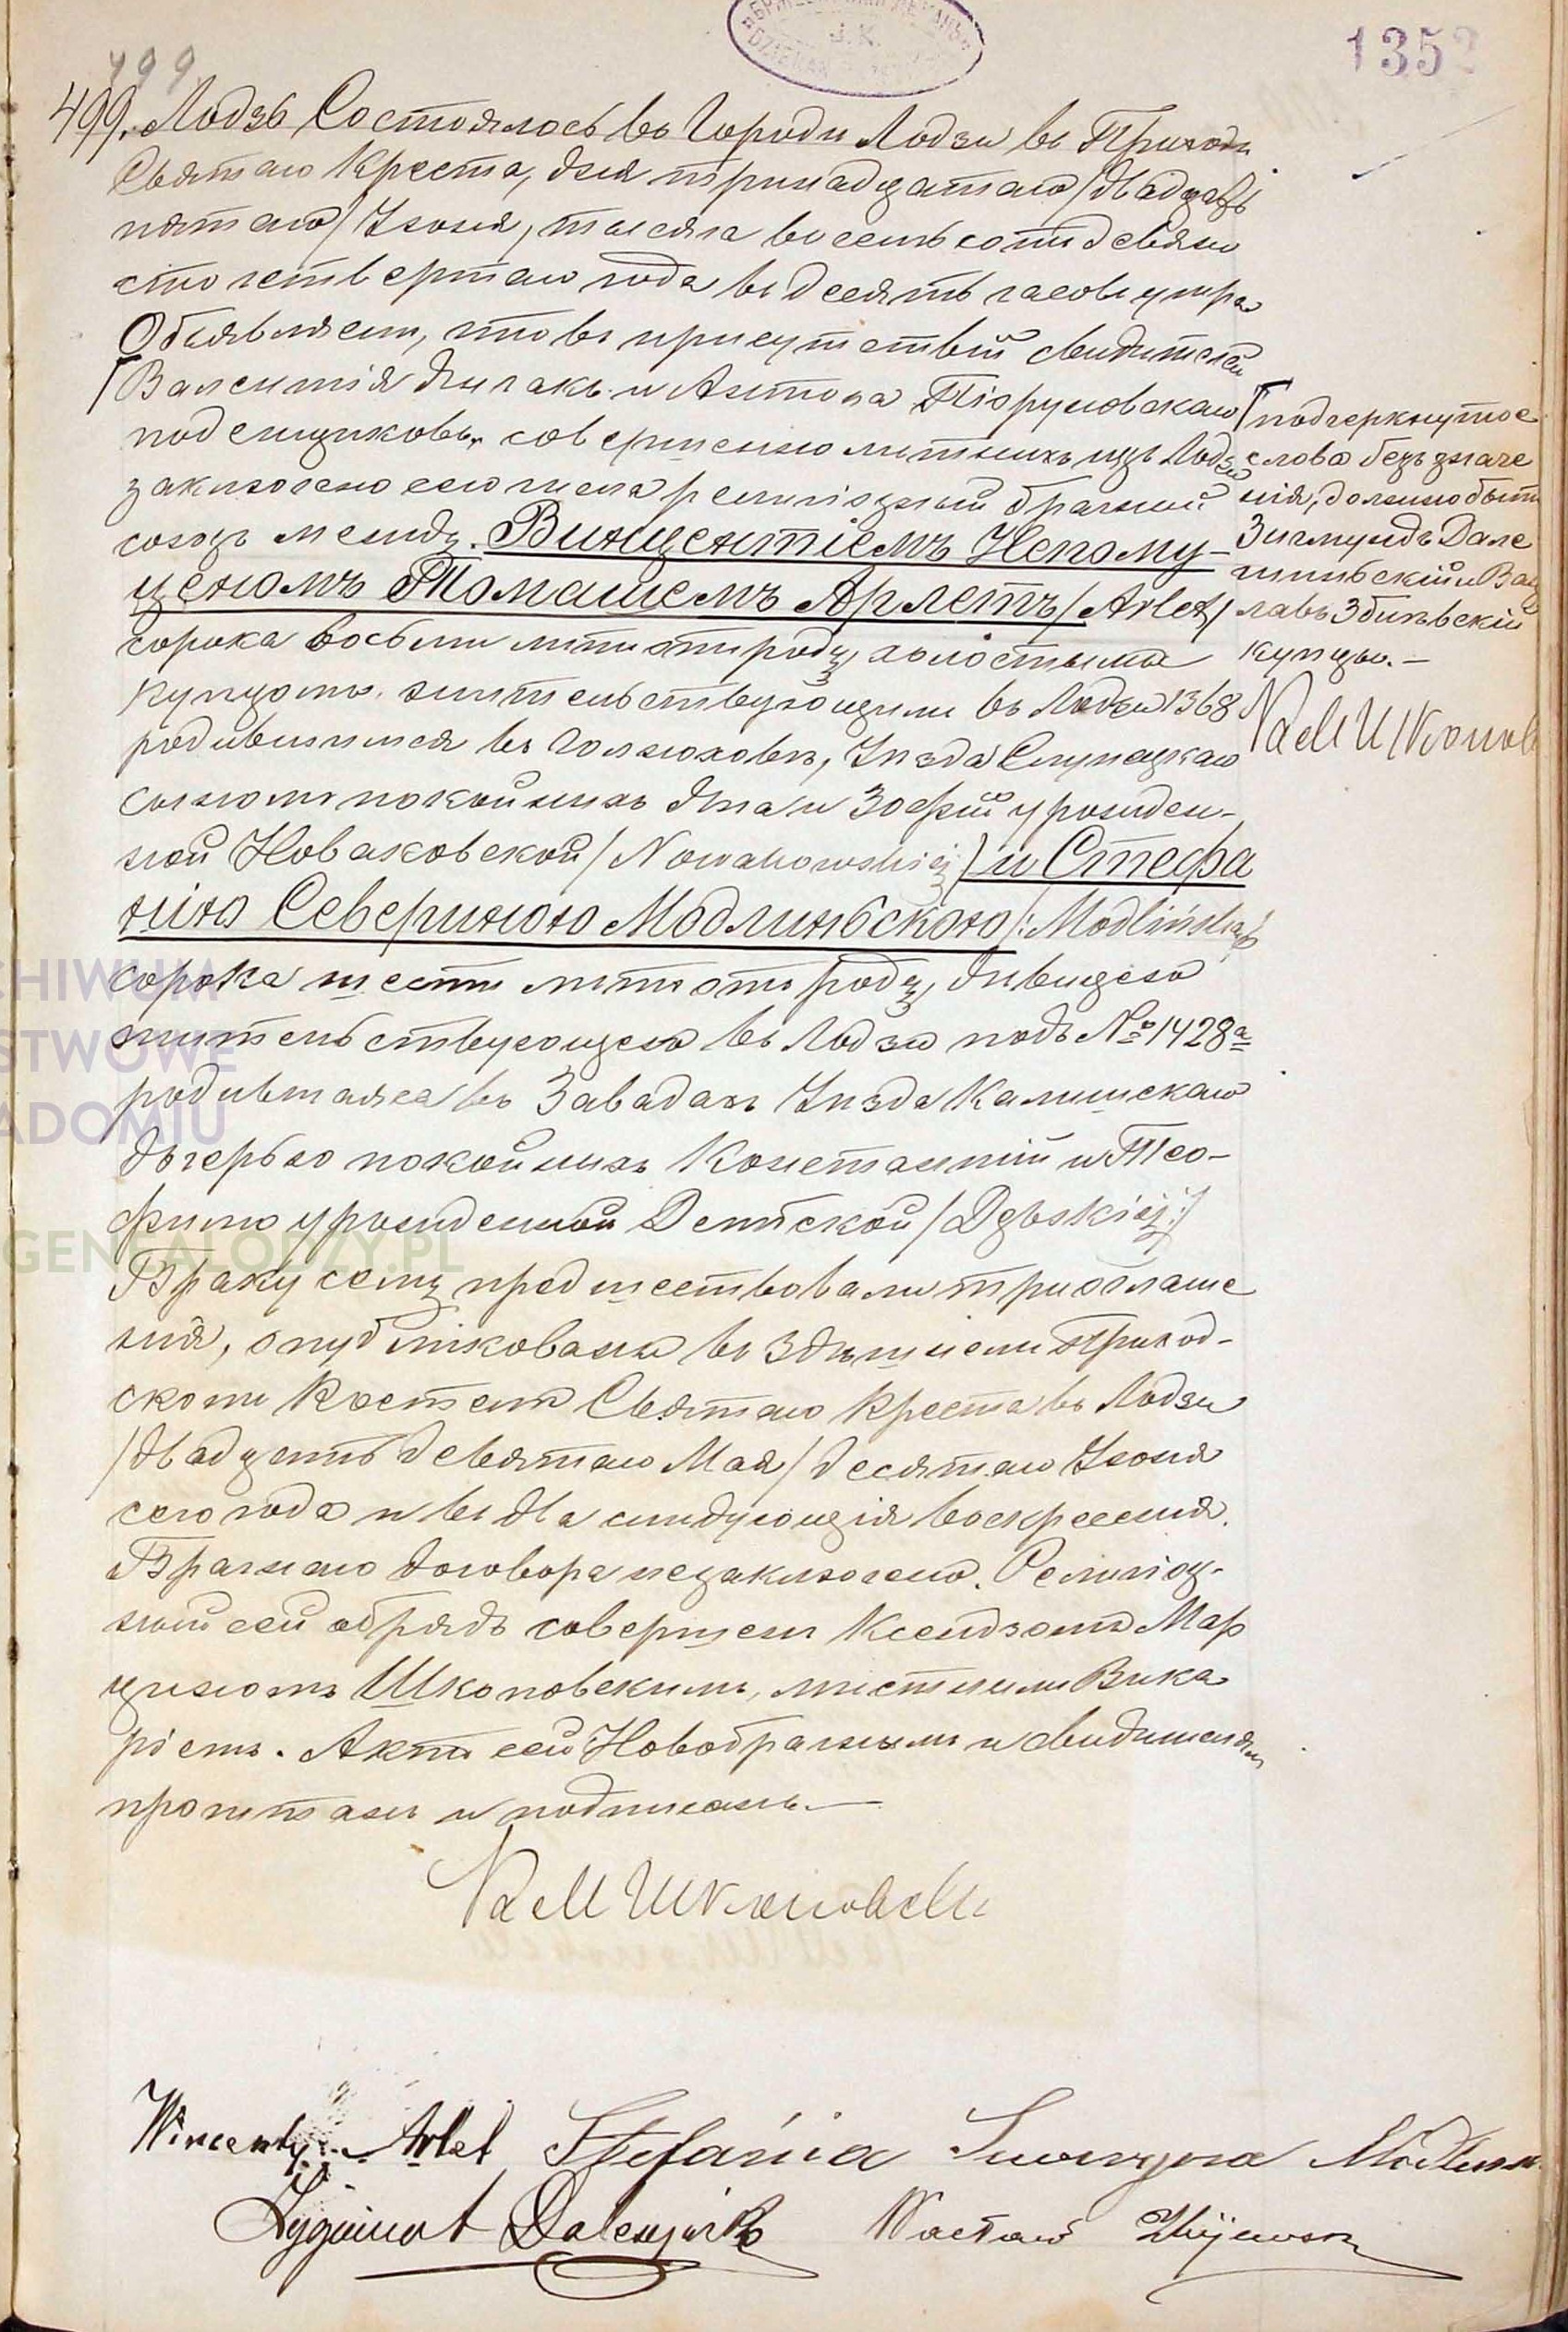 1352
499
499. Лодзь Состоялось въ Городѣ Лодзи въ Приходѣ
Святаго Креста, дня тринадцатаго /двадцать
пятаго/ Іюня, тысяча восемьсотъ девяно
сто четвертаго года въ десять часовъ утра
Объявляемъ, что въ присутствіи свидѣтелей
Валентія и Антона
поденщиковъ, совершеннолѣтнихъ изъ Лодзи
заключено сего числа религіозный брачный
союзъ между Винцентіемъ Непому-
ценомъ Томашемъ Арлетъ /Arlet/
сорока восьми лѣтъ отъ роду, холостымъ
купцомъ, жительствующимъ въ Лодзи 1368
родившимся въ Уѣзда Слупецкаго
сыномъ покойныхъ Яна и Зофіи урожден-
ной Новаковской /Nowakowskiej/ и Стефа
ніею Севериною Модлиньскою /:Modlińską/
сорока шести лѣтъ отъ роду, дѣвицею
жительствующею въ Лодзи подъ № 1428а
родившаяся въ Завадахъ Уѣзда Калишскаго
дочерью покойныхъ Константій и Тео-
филію урожденной /Dębskiej:/
Браку сему предшествовали три оглаше
нія, опубликованы въ здѣшнемъ Приход-
скомъ Костелѣ Святаго Креста въ Лодзи
/двадцать девятаго Мая/ десятаго Іюня
сего года и въ два слѣдующія воскресенія.
Брачнаго договора незаключено. Религіоз-
ный сей обрядъ совершенъ Ксендзомъ Мар
циномъ Шконовскимъ, мѣстнымъ Вика
ріемъ. Актъ сей Новобрачнымъ и свидѣтелямъ
прочитанъ и подписанъ.—
подчеркнутое
слова безъ значе
нія, должно быть
Зигмундъ Дале
шиньскій и Вац
лавъ Збиевскій
купцы.—
Wincenty Arlet Stefania Seweryna Modlińsk
Zygmunt Wacław
ARCHIWUM
PAŃSTWOWE
RADOMIU
GENEALODZY.PL